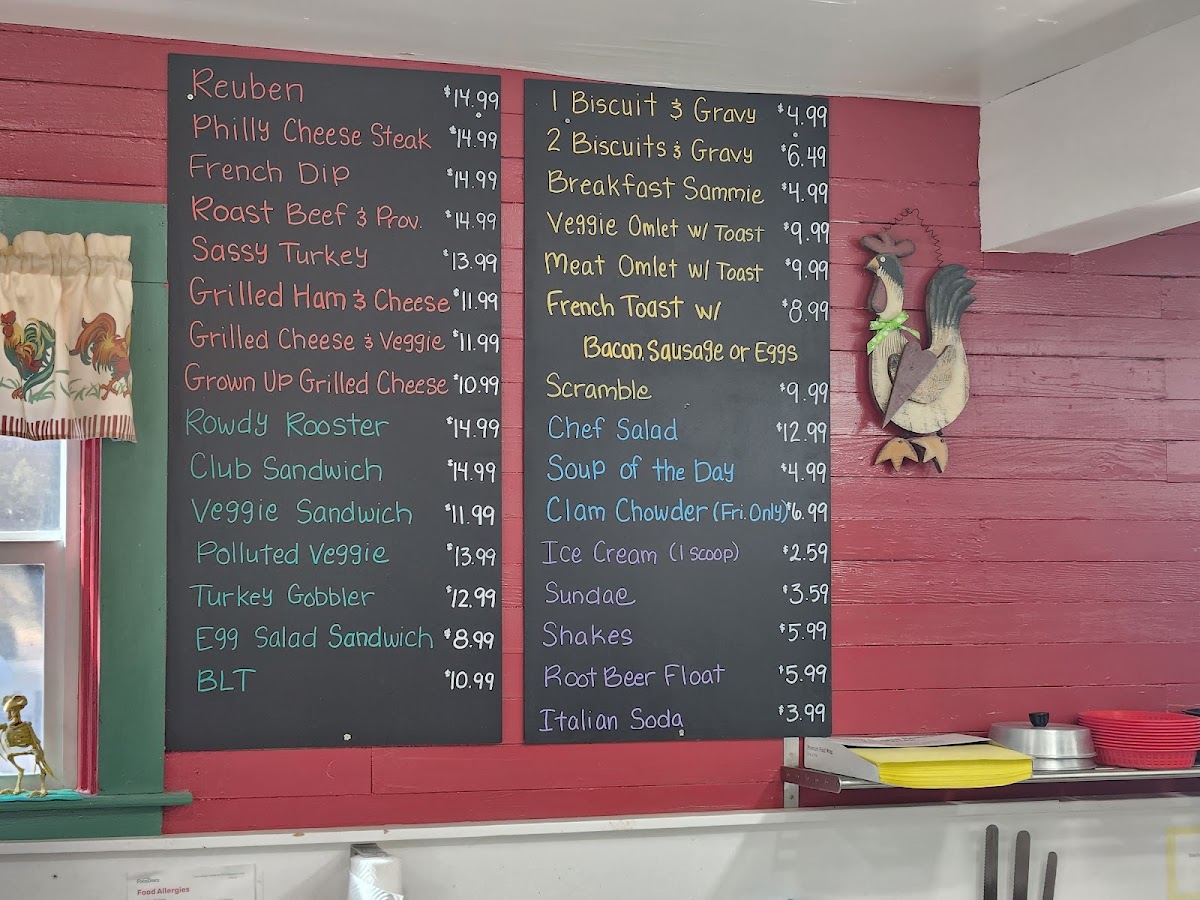 Reuben $14.99
Philly Cheese Steak $14.99
French Dip $14.99
Roast Beef & Prov. $14.99
Sassy Turkey $13.99
Grilled Ham & Cheese $11.99
Grilled Cheese & Veggie $11.99
Grown Up Grilled Cheese $10.99
Rowdy Rooster $14.99
Club Sandwich $14.99
Veggie Sandwich $11.99
Polluted Veggie $13.99
Turkey Gobbler $12.99
Egg Salad Sandwich $8.99
BLT $10.99
1 Biscuit & Gravy $4.99
2 Biscuits & Gravy $6.49
Breakfast Sammie $4.99
Veggie Omlet w/ Toast $9.99
Meat Omlet w/ Toast $9.99
French Toast w/ $8.99
Bacon, Sausage or Eggs
Scramble $9.99
Chef Salad $12.99
Soup of the Day $4.99
Clam Chowder (Fri. Only) $6.99
Ice Cream (1 scoop) $2.59
Sundae $3.59
Shakes $5.99
Root Beer Float $5.99
Italian Soda $3.99
Food Allergies